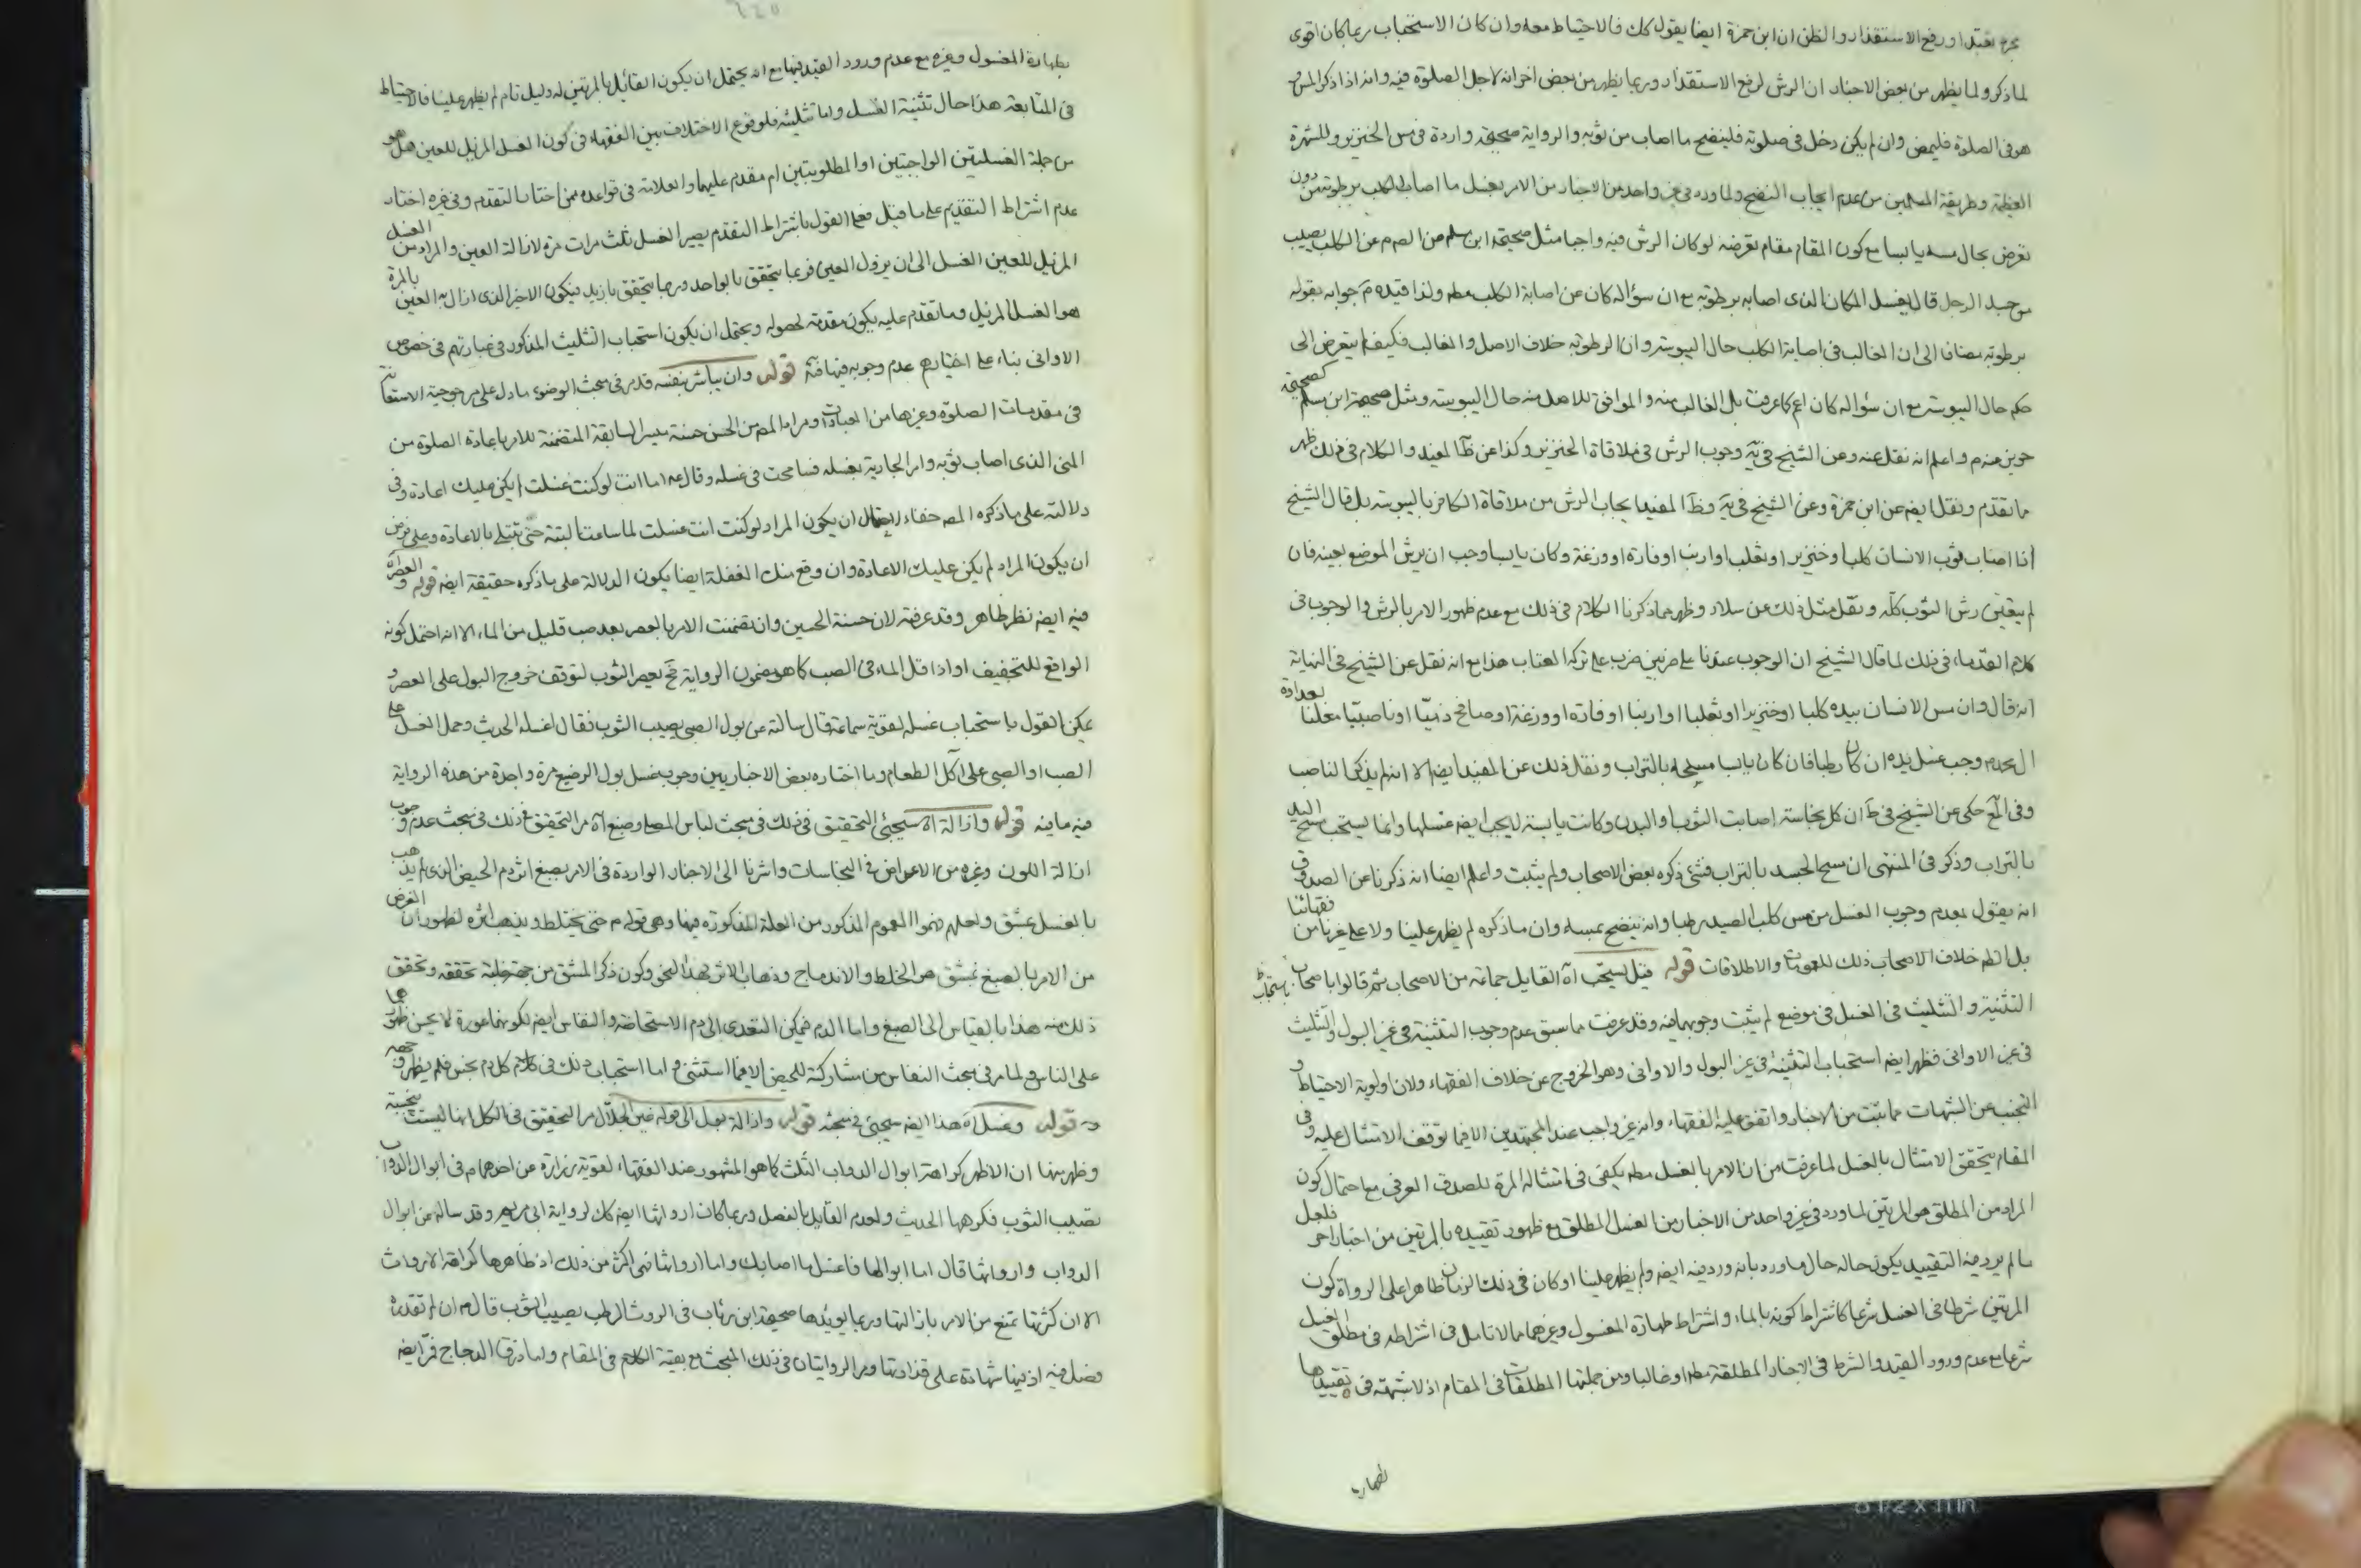 لما ذكر ولما يظهر من بعض الاخبار ان الرش لرفع الاستقذار وربما يظهر من بعض اخر انه لاجل الصلوة فيه وانه اذا ذكر المس و
هو فى الصلوة فليمض وان لم يكن دخل فى صلوته فلينضح ما اصاب من ثوبه والرواية صحيحة واردة فى مس الخنزير وللشهرة
العظيمة وطريقة المسلمين من عدم ايجاب النضح ولما ورد فى غير واحد من الاخبار من الامر بغسل ما اصابه الكلب برطوبة من دون
تعرض بحال مسه يابسا مع كون المقام مقام تعرضه لو كان الرش فيه واجبا مثل صحيحة ابن مسلم عن الكلب يصيب
من جسد الرجل قال يغسل المكان الذى اصابه برطوبة مع ان سؤاله كان عن اصابة الكلب مطه ولذا قيده م جوابه بقوله
برطوبة مضافا الى ان الغالب فى اصابة الكلب حال اليبوسة وان الرطوبة خلاف الاصل والغالب فكيف لم يتعرض الى
حكم حال اليبوسة مع ان سؤاله كان اعم كما عرفت بل الغالب منه والموافق للاصل منه حال اليبوسة ومثل صحيحة ابن مسلم كصحيحة
ما تقدم ونقل ايضه عن ابن حمزة وعن الشيخ فى يه وظ المفيد ايجاب الرش من ملاقاة الكافر باليبوسة بل قال الشيخ
اذا اصاب ثوب الانسان كلب او خنزير او ثعلب او ارنب او فارة او وزغة وكان يابسا وجب ان يرش الموضع بعينه فان
لم يتعين رش الثوب كله ونقل مثل ذلك عن سلار وظهر مما ذكرنا الكلام فى ذلك مع عدم ظهور الامر بالرش والوجوب فى
كلام القدماء فى ذلك لما قال الشيخ ان الوجوب عندنا على ضربين ضرب على تركه العقاب هذا مع انه نقل عن الشيخ فى النهاية
انه قال وان مس الانسان بيده كلبا او خنزيرا او ثعلبا او ارنبا او فارة او وزغة او صافح ذميا او ناصبيا معلنا بعداوة
ال محمد م وجب غسل يده ان كان رطبا فان كان يابسا مسحه بالتراب ونقل ذلك عن المفيد ايضه الا انه لم يذكر الناصب
وفى المع حكى عن الشيخ فى ط ان كل نجاسة اصابت الثوب او البدن وكانت يابسة لا يجب ايضه غسلها وانما يستحب مسح اليد
بالتراب وذكر فى المنتهى ان مسح الجسد بالتراب فشئ ذكره بعض الاصحاب ولم يثبت واعلم ايضا انه ذكرنا عن الصدوق
انه يقول بعدم وجوب الغسل من مس كلب الصيد رطبا وانه ينضح بمسه وان ما ذكره لم يظهر علينا ولا على غيرنا من فقهائنا
بل الظه خلاف الاصحاب ذلك للعمومات والاطلاقات قوله قيل يستحب اه القايل جماعة من الاصحاب
التثنية والتثليث فى الغسل فى موضع لم يثبت وجوبهما فيه وقد عرفت مما سبق عدم وجوب التثنية فى غير البول والتثليث
فى غير الاوانى فظهر ايضه استحباب التثنية فى غير البول والاوانى وهو الخروج عن خلاف الفقهاء ولان اولوية الاحتياط و
التجنب عن الشبهات مما يثبت من الاخبار واتفق عليه الفقهاء وانه غير واجب عند المجتهدين الا فيما توقف الامتثال عليه وفى
المقام يتحقق الامتثال بالغسل لما عرفت من ان الامر بالغسل مطه يكفى فى امتثاله المرة للصدق العرفى مع احتمال كون
المراد من المطلق هو المرتين لما ورد فى غير واحد من الاخبار من الغسل المطلق مع ظهور تقييده بالمرتين من اخبار اخر فلعل
ما لم يرد فيه التقييد يكون حاله حال ما ورد بانه ورد فيه ايضه ولم يظهر علينا او كان فى ذلك الزمان ظاهرا على الرواة كون
المرتين شرطا فى الغسل شرعا كاشتراط كونه بالماء واشتراط طهارة المغسول وغيرهما مما لا تامل فى اشتراطه فى مطلق الغسل
شرعا مع عدم ورود القيد والشرط فى الاخبار المطلقة مطه او غالبا ومن جملتها المطلقات فى المقام اذ لا شبهة فى تقييدها
بطهارة
بطهارة المغسول وغيره مع عدم ورود القيد فيها مع انه يحتمل ان يكون القائل بالمرتين له دليل تام لم يظهر علينا فالاحتياط
فى المتابعة هذا حال تثنية الغسل واما تثليثه فلوقوع الاختلاف بين الفقهاء فى كون الغسل المزيل للعين هل هو
من جملة الغسلتين الواجبتين او المطلوبتين ام مقدم عليهما والعلامة فى قواعده ممن اختار التقدم وفى غيره اختار
عدم اشتراط التقديم على ما قيل فعلى القول باشتراط التقدم يصير الغسل ثلث مرات مرة لازالة العين والمراد من الغسل
المزيل للعين الغسل الى ان يزول العين فربما يتحقق بالواحد وربما يتحقق بازيد فيكون الاخير الذى ازال به العين بالمرة
هو الغسل المزيل وما تقدم عليه يكون مقدمة لحصوله ويحتمل ان يكون استحباب التثليث المذكور فى عبارتهم فى خصوص
الاوانى بناء على اختيارهم عدم وجوبه فيها قوله وان يباشر بنفسه قد مر فى مبحث الوضوء ما دل على مرجوحية الاستعانة
فى مقدمات الصلوة وغيرها من العبادات ومراد المصه من الحسن حسنة ميسر السابقة المتضمنة للامر باعادة الصلوة من
المنى الذى اصاب ثوبه وامر الجارية بغسله فسامحت فى غسله وقال ع اما انت لو كنت غسلت لم يكن عليك اعادة وفى
دلالته على ما ذكره المصه خفاء لاحتمال ان يكون المراد لو كنت انت غسلت لما سامحت البتة حتى تبتلى بالاعادة وعلى فرض
ان يكون المراد لم يكن عليك الاعادة وان وقع منك الغفلة ايضا يكون الدلالة على ما ذكره حقيقة ايضه قوله والعصر اه
فيه ايضه نظر ظاهر وقد عرفته لان حسنة الحسين وان تضمنت الامر بالعصر بعد صب قليل من الماء الا انه احتمل كونه
الواقع للتجفيف او اذا قل الماء فى الصب كما هو مضمون الرواية فح يعصر الثوب لتوقف خروج البول على العصر و
يمكن القول باستحباب غسله لقوية سماعة قال سالته عن بول الصبى يصيب الثوب فقال اغسله الحديث وحمل الغسل على
الصب او الصبى على اكل الطعام وما اختاره بعض الاخباريين وجوب غسل بول الرضيع مرة واحدة من هذه الرواية
فيه ما فيه قوله وازالة اه سيجئ التحقيق فى ذلك فى مبحث لباس المصلى وصبغ اه مر التحقيق فى ذلك فى مبحث عدم وجوب
ازالة اللون وغيره من الاعراض فى النجاسات واشرنا الى الاخبار الواردة فى الامر بصبغ اثر دم الحيض الذى لم يذهب
بالغسل بمشق ولعلهم فهموا العموم المذكور من العلة المذكورة فيها وهى قوله م حتى يختلط ويذهب اثره لظهور ان الغرض
من الامر بالصبغ بمشق هو الخلط والاندماج وذهاب الاثر بهذا النحو وكون ذكر المشق من جهة غلبة تحققه وتحقق
ذلك منه هذا بالقياس الى الصبغ واما الدم فيمكن التعدى الى دم الاستحاضة والنفاس ايضه لكونهما عورة لا يحسن ظهورها
على الناس ولما مر فى مبحث النفاس من مشاركته للحيض الا فيما استثنى واما استحباب ذلك فى كل دم نجس فلم يظهر وجهه
قوله وغسل اه هذا ايضه سيجئ فى مبحثه قوله وازالة بول الى قوله غير الجلال مر التحقيق فى الكل انها ليست بنجسة
وظهر منها ان الاظهر كراهة ابوال الدواب الثلث كما هو المشهور عند الفقهاء لقوية زرارة عن احدهما م فى ابوال الدواب
تصيب الثوب فكرهها الحديث ولعدم القايل بالفصل وربما كان ارواثها ايضه كك لرواية ابى مريم وقد ساله عن ابوال
الدواب وارواثها قال اما ابوالها فاغسل ما اصابك واما ارواثها فهى اكثر من ذلك اذ ظاهرها كراهة الارواث
الا ان كثرتها تمنع من الامر بازالتها وربما يؤيدها صحيحة ابن رئاب فى الروث الرطب يصيب الثوب قال م ان لم تقذره
فصل فيه اذ فيها شهادة على قذارتها ومر الروايتان فى ذلك المبحث مع بقية الكلام فى المقام واما ذرق الدجاج فمر ايضه